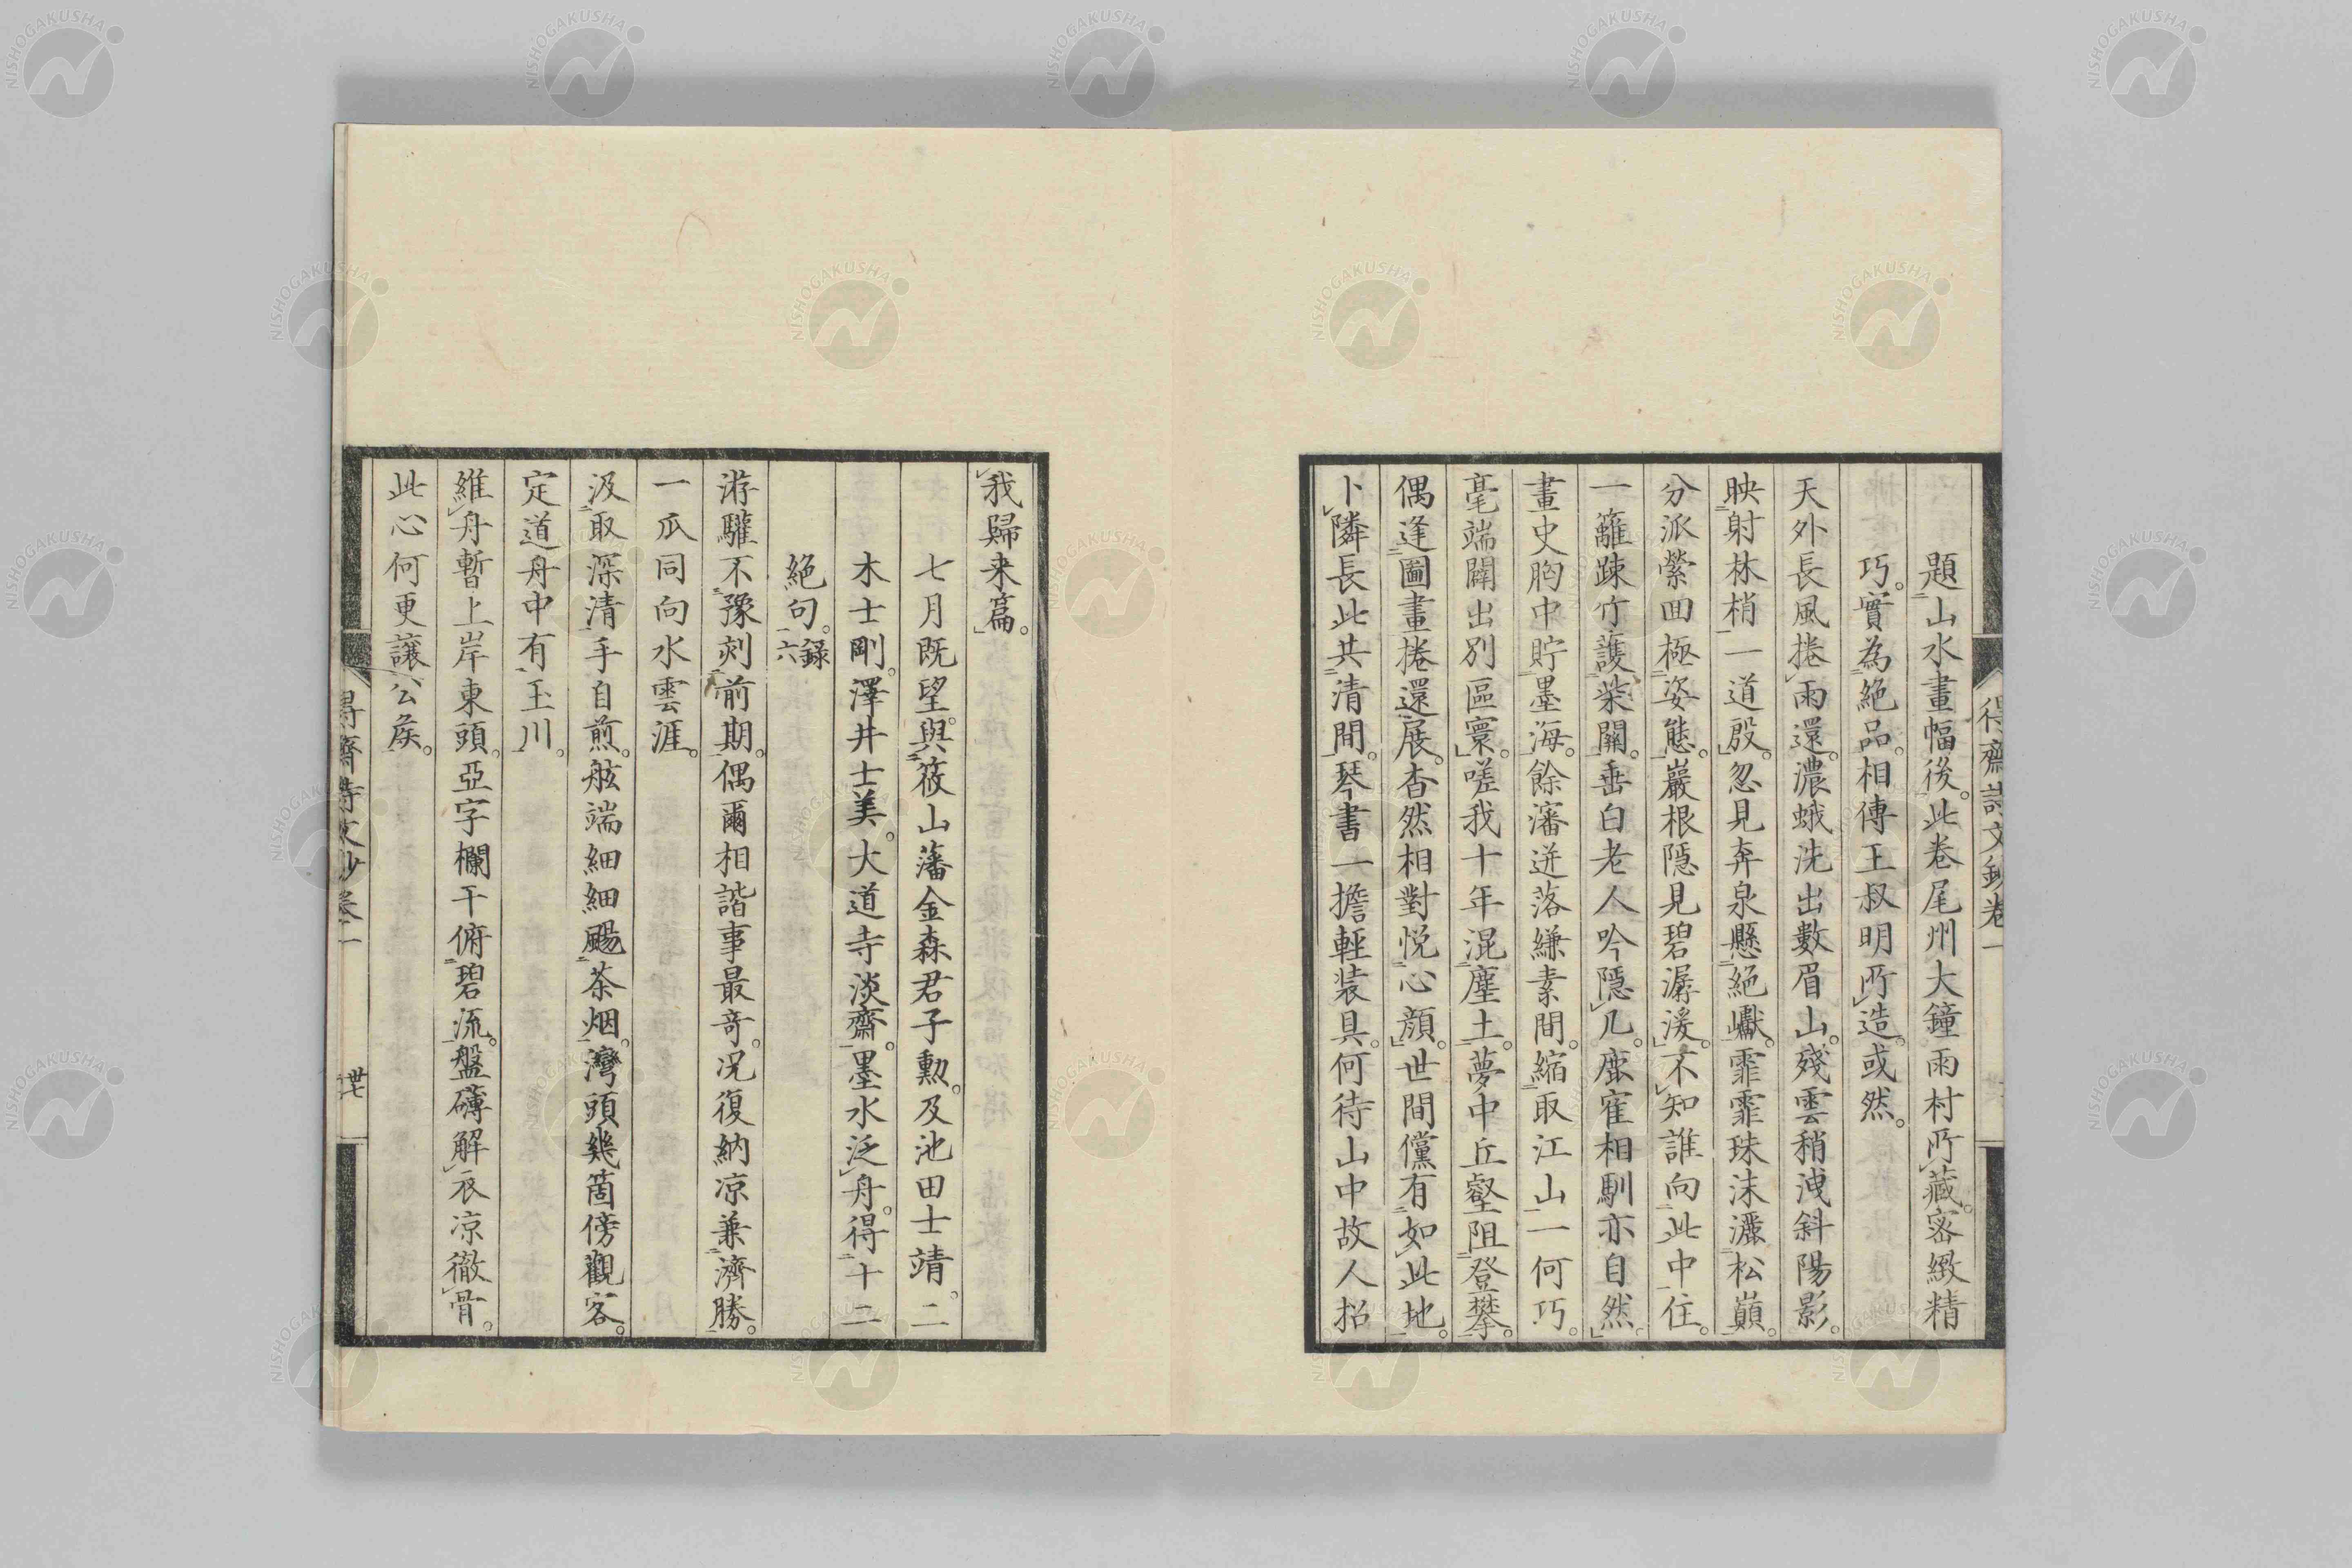 得齋詩文鈔卷一
題山水畫幅後。此卷尾州大鐘雨村所藏。密緻精
巧。實為絕品。相傳王叔明所造。或然。
天外長風捲雨還。濃蛾洗出數眉山。殘雲稍洩斜陽影。
映射林梢一道殷。忽見奔泉懸絕巘。霏霏珠沫灑松巔。
分派縈回極姿態。巖根隱見碧潺湲。不知誰向此中住。
一籬疎竹護柴關。垂白老人吟隱几。鹿寉相馴亦自然。
畫史胸中貯墨海。餘瀋迸落縑素間。縮取江山一何巧。
毫端闢出別區寰。嗟我十年混塵土。夢中丘壑阻登攀。
偶逢圖畫捲還展。杳然相對悅心顏。世間儻有如此地。
卜隣長此共清閒。琴書一擔輕裝具。何待山中故人招
我歸来篇。
七月既望。與筱山藩金森君子勲。及池田士靖。二
木士剛。澤井士美。大道寺淡齋。墨水泛舟。得十二
絕句。錄六
游驩不豫刻前期。偶爾相諧事最奇。況復納凉兼濟勝。
一瓜同向水雲涯。
汲取深清手自煎。舷端細細颺茶烟。灣頭幾箇傍觀客。
定道舟中有玉川。
維舟暫上岸東頭。亞字欄干俯碧流。盤礴解衣凉徹骨。
此心何更讓公矦。
得齋詩文鈔卷一
卅七